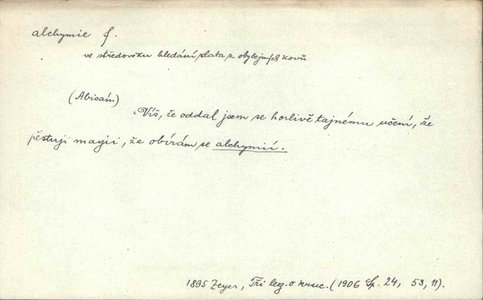 alchymie f.
ve středověku hledání zlata z obyčejných kovů
(Abisáin)
Víš, že oddal jsem se horlivě tajnému učení, že
pěstuji magii, že obírám se alchymií.
1895 Zeyer, Tři leg. o kruc. (1906 Sp. 24, 53, 11).